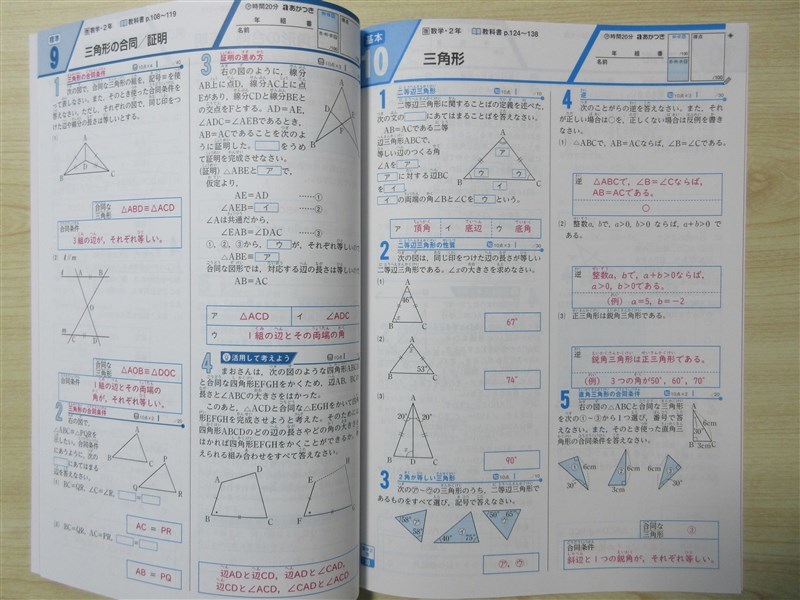 標本
9
三角形の合同/証明
数学・2年
教科書 p.108〜119
時間20分
あかつき
年 組 番
名前
1 三角形の合同条件
次の図で、合同な三角形の組を、記号≡を使
って表しなさい。また、そのとき使った合同条件を
答えなさい。ただし、それぞれの図で、同じ印をつ
けた辺や線分の長さは等しい。
(1)
A
D
B
C
合同な三角形
△ABD≡△ACD
合同条件
3組の辺が、それぞれ等しい。
(2) ℓ//m
A
B
O
C
D
合同な三角形
△AOB≡△DOC
合同条件
1組の辺とその両端の
角が、それぞれ等しい。
2 三角形の合同条件
右の図で、
△ABC≡△PQRを
示したい。合同条件
にあうように、次の
にあてはまる
辺を答えなさい。
A
B
C
P
Q
R
(1) BC=QR、∠C=∠R、
AC = PR
(2) BC=QR、AC=PR、
AB = PQ
3 証明の進め方
右の図のように、線分
AB上に点D、線分AC上に点
Eがあり、線分CDと線分BEと
の交点をFとする。AD=AE、
∠ADC=∠AEBであるとき、
AB=ACであることを次のよう
に証明した。 をうめ
て証明を完成させなさい。
(証明) △ABEと ア で、
仮定より、
AE=AD ……①
∠AEB= イ ……②
∠Aは共通だから、
∠EAB=∠DAC ……③
①、②、③から、 ウ が、それぞれ等しいので
△ABE≡ ア
合同な図形では、対応する辺の長さは等しいので
AB=AC
ア △ACD イ ∠ADC
ウ 1組の辺とその両端の角
4 活用して考えよう
まおさんは、次の図のような四角形ABCD
と合同な四角形EFGHをかくため、辺AB、BCの
長さと∠ABCの大きさをはかった。
このあと、△ACDと合同な△EGHをかいて四角
形EFGHを完成させようと考えた。そのためには
四角形ABCDのどの辺の長さやどの角の大きさを
はかれば四角形EFGHをかくことができるか。考
えられる組み合わせをすべて答えなさい。
A
D
B
C
E
H
F
G
辺ADと辺CD、辺ADと∠CAD、
辺CDと∠ACD、∠CADと∠ACD
基本
10
三角形
数学・2年
教科書 p.124〜138
時間20分
あかつき
年 組 番
名前
/100
1 二等辺三角形
二等辺三角形に関することばの定義を述べた、
次の文の にあてはまることばを答えなさい。
AB=ACである二等
辺三角形ABCで、
等しい辺のつくる角
∠Aを ア 、
ア に対する辺BC
を イ 、
イ の両端の角∠Bと∠Cを ウ という。
A
ア
ウ
ウ
B
イ
C
ア 頂角 イ 底辺 ウ 底角
2 二等辺三角形の性質
次の図は、同じ印をつけた辺の長さが等しい
二等辺三角形である。∠xの大きさを求めなさい。
(1)
A
46°
x
B
C
67°
(2)
A
x
53°
B
C
74°
(3)
A
20°
20°
x
B
C
90°
3 2角が等しい三角形
次の㋐〜㋒の三角形のうち、二等辺三角形で
あるものをすべて選び、記号で答えなさい。
58°
58°
40°
75°
50°
65°
㋐、㋒
4 逆
次のことがらの逆を答えなさい。また、それ
が正しい場合は○を、正しくない場合は反例を書き
なさい。
(1) △ABCで、AB=ACならば、∠B=∠Cである。
逆
△ABCで、∠B=∠Cならば、
AB=ACである。
○
(2) 整数a、bで、a>0、b>0 ならば、a+b>0 で
ある。
逆
整数a、bで、a+b>0ならば、
a>0、b>0である。
(例) a=5、b=−2
(3) 正三角形は鋭角三角形である。
逆
鋭角三角形は正三角形である。
(例) 3つの角が50°、60°、70°
5 直角三角形の合同条件
右の図の△ABCと合同な三角形
を次の①〜③から1つ選び、番号で答
えなさい。また、そのとき使った直角三
角形の合同条件を答えなさい。
A
30°
6cm
B
3cm
C
①
6cm
30°
3cm
②
6cm
③
30°
合同な三角形
③
合同条件
斜辺と1つの鋭角が、それぞれ等しい。